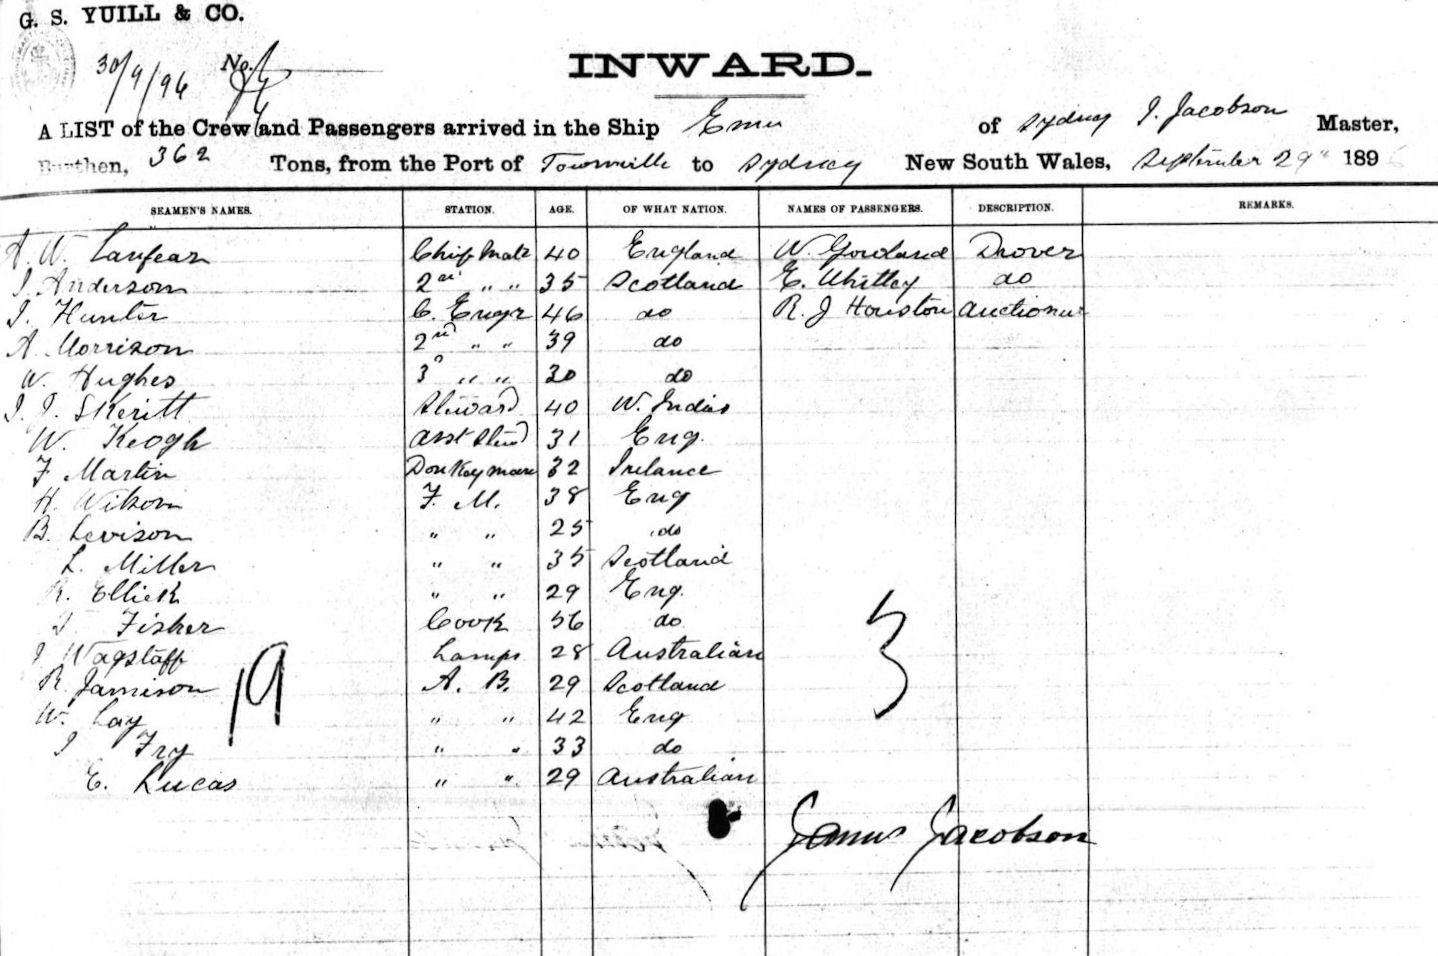 G. S. YUILL & CO.
30/9/96 No.
INWARD.
A LIST of the Crew and Passengers arrived in the Ship Emu of Sydney J. Jacobson Master,
Burthen, 362 Tons, from the Port of Townville to Sydney New South Wales, September 29" 1896
SEAMEN'S NAMES. STATION. AGE. OF WHAT NATION. NAMES OF PASSENGERS. DESCRIPTION. REMARKS.
A. W. Lanfear Chief Mate 40 England W. Gowland Drover
J. Anderson 2nd " " 35 Scotland E. Whitley do
J. Hunter C. Engr 46 do R. J Houston Auctioneer
A. Morrison 2nd " " 39 do
W. Hughes 3 " " 30 do
J. J. Skeritt Steward 40 W. Indies
W. Keogh Asst Stewd 31 Eng.
F Martin Donkeyman 32 Ireland
H. Wilson F. M. 38 Eng
B. Levison " " 25 do
L. Miller " " 35 Scotland
R. Ellick " " 29 Eng.
Fisher Cook 56 do
J Wagstaff Lamps 28 Australian
R. Jamison A. B. 29 Scotland
W. Lay " " 42 Eng
J Fry " " 33 do
E. Lucas " " 29 Australian
19
3
James Jacobson